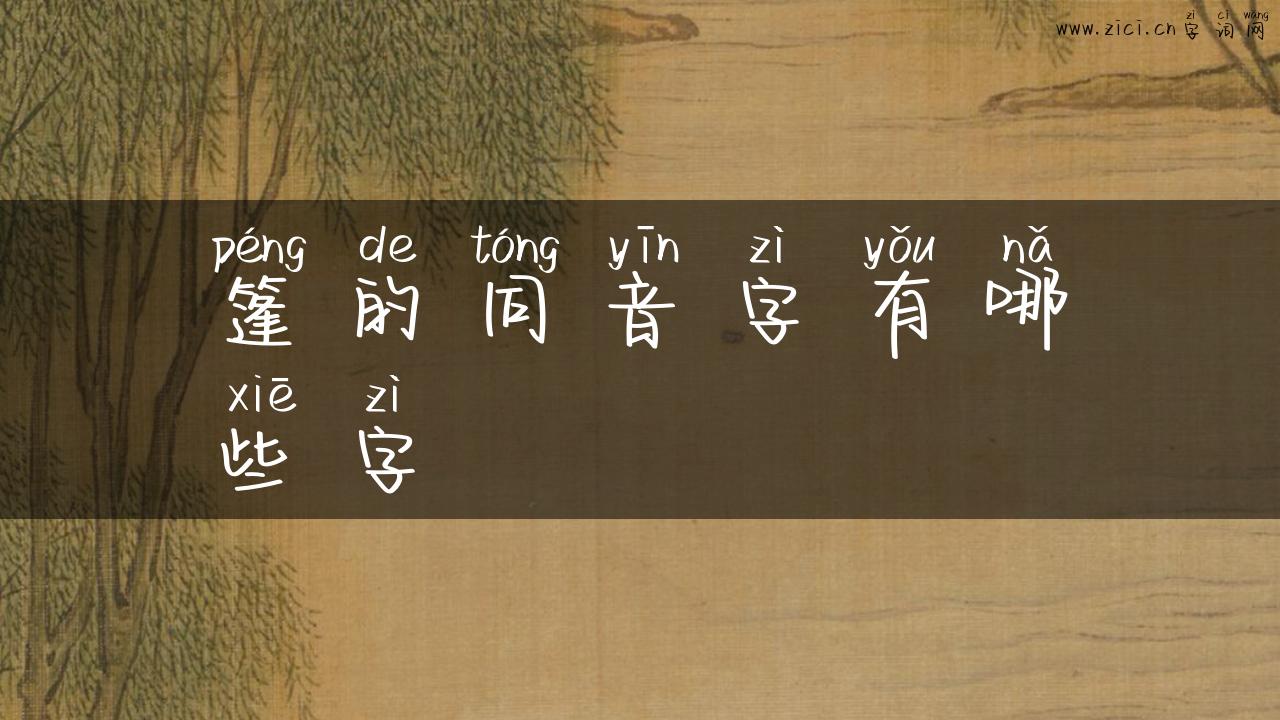 zì cí wǎng
www.zici.cn字词网
péng de tóng yīn zì yǒu nǎ
篷的同音字有哪
xiē zì
些字